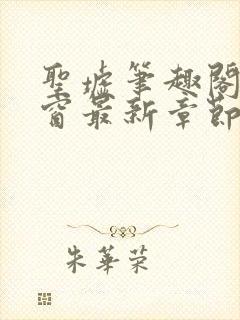 聖墟筆趣閣
窗最新章節
朱華荣